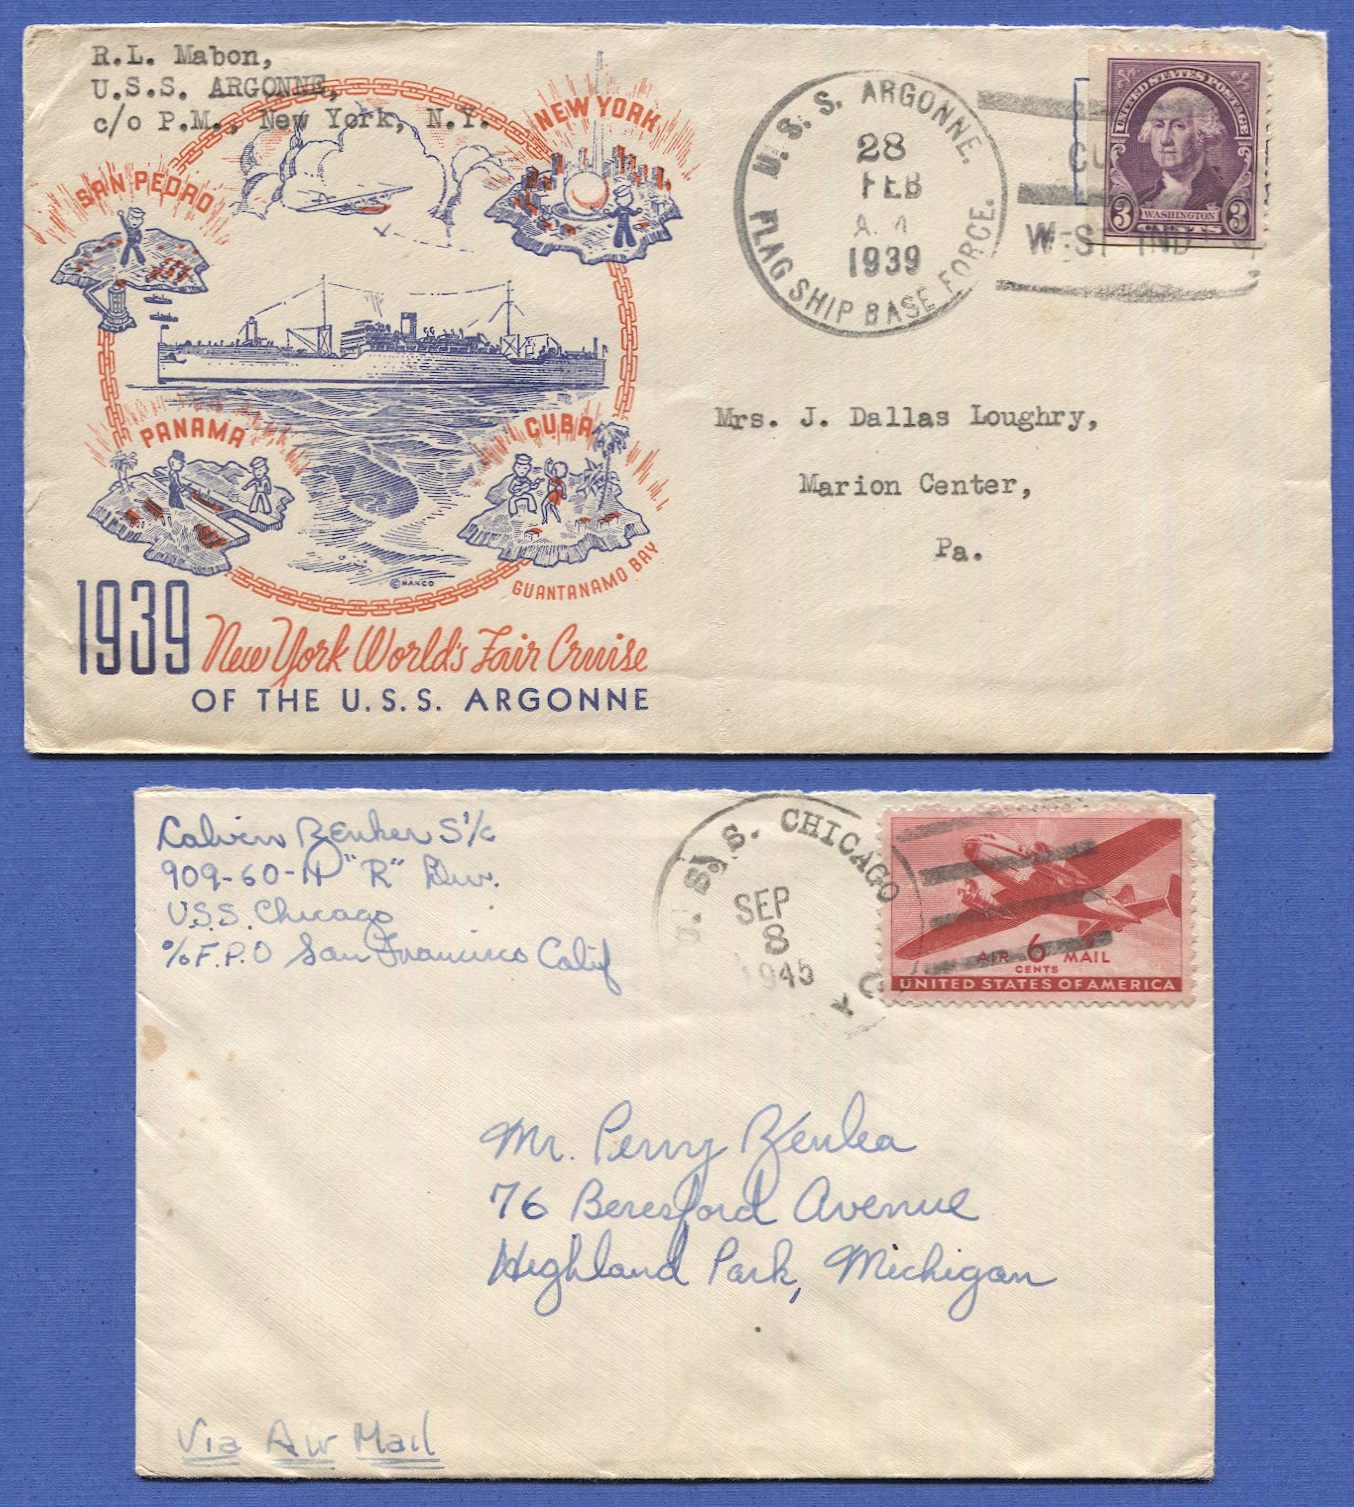 R.L. Mabon,
U.S.S. ARGONNE,
c/o P.M., New York, N.Y.
SAN PEDRO
NEW YORK
PANAMA
CUBA
GUANTANAMO BAY
© NANCO
1939 New York World's Fair Cruise
OF THE U.S.S. ARGONNE
U.S.S. ARGONNE.
28
FEB
A.M
1939
FLAG SHIP BASE FORCE.
WEST IND
UNITED STATES POSTAGE
3 WASHINGTON 3
CENTS
Mrs. J. Dallas Loughry,
Marion Center,
Pa.
909-60-11 "R" Div.
U.S.S. Chicago
c/o F.P.O San Francisco Calif
U.S.S. CHICAGO
SEP
8
1945
AIR 6 MAIL
CENTS
UNITED STATES OF AMERICA
Mr. Perry
76 Beresford Avenue
Highland Park, Michigan
Via Air Mail